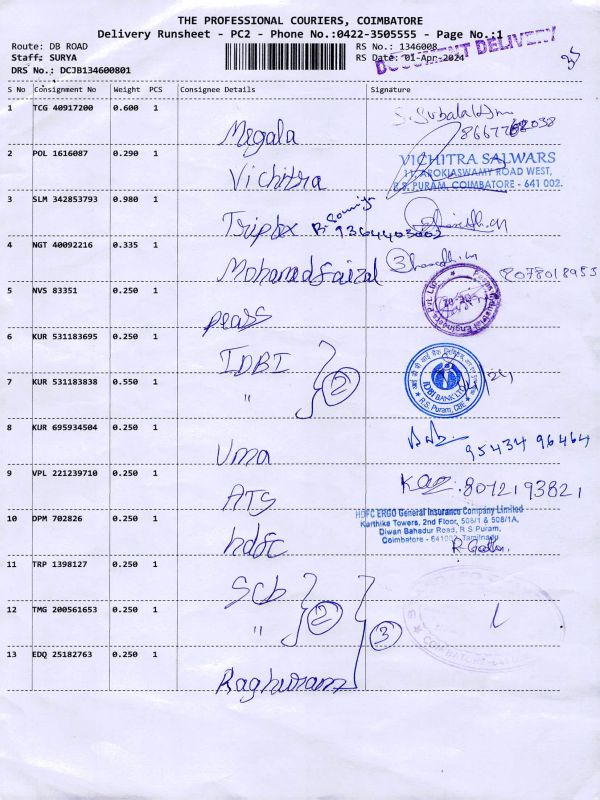 THE PROFESSIONAL COURIERS, COIMBATORE
Delivery Runsheet - PC2 - Phone No.:0422-3505555 - Page No.:1
Route: DB ROAD RS No.: 1346008
Staff: SURYA RS Date: 01-Apr-2024
DOCUMENT DELIVERY
DRS No.: DCJB134600801
S No Consignment No Weight PCS Consignee Details Signature
1 TCG 40917200 0.600 1 Megala
2 POL 1616087 0.290 1 Vichitra
VICHITRA SALWARS
11, AROKIASWAMY ROAD WEST,
R.S. PURAM, COIMBATORE - 641 002.
3 SLM 342853793 0.980 1 9364403002
4 NGT 40092216 0.335 1 Mohamed Faizal 8078018955
5 NVS 83351 0.250 1 pears
6 KUR 531183695 0.250 1 IDBI
IDBI BANK LTD
R.S. Puram, CBE
7 KUR 531183838 0.550 1 " 2
8 KUR 695934504 0.250 1 Uma 95434 96464
9 VPL 221239710 0.250 1 ATS 8072193821
10 DPM 702826 0.250 1 hdfc
HDFC ERGO General Insurance Company Limited
Karthika Towers, 2nd Floor, 508/1 & 508/1A,
Diwan Bahadur Road, R S Puram,
Coimbatore - 641002, Tamilnadu
11 TRP 1398127 0.250 1 Scb
12 TMG 200561653 0.250 1 " 2 3
13 EDQ 25182763 0.250 1 Raghuram